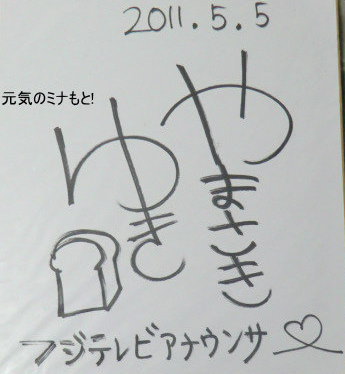 2011.5.5
元気のミナもと!
やまさき
ゆき
フジテレビアナウンサ